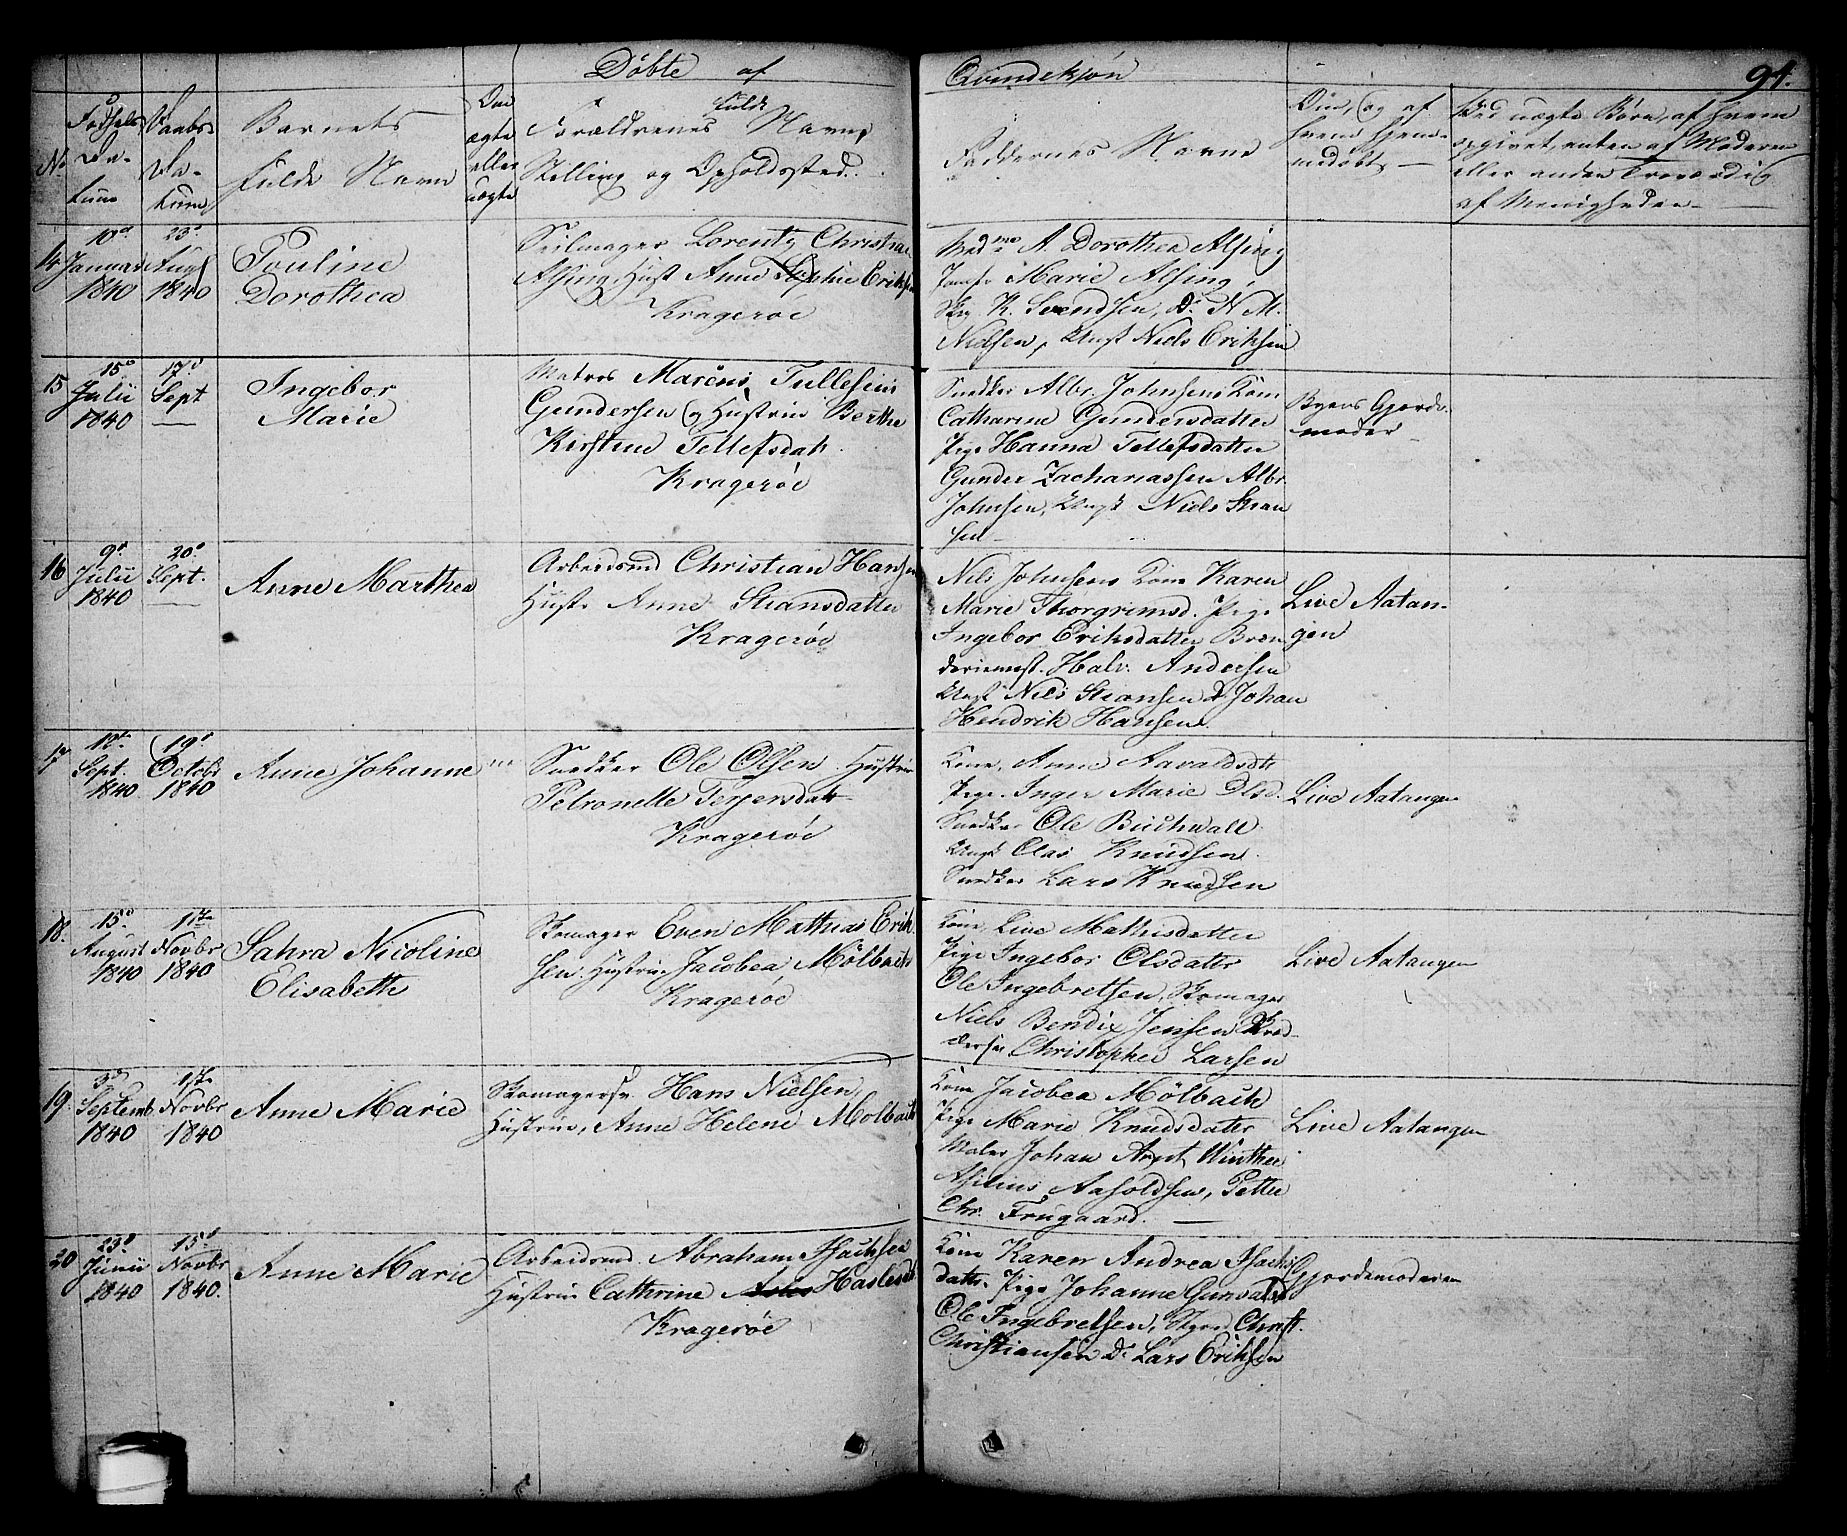 Døbte af Qvindekjøn 94.
No
Fødsels Da- tum
Daabs Da- tum
Barnets fulde Navn
Om ægte eller uægte
Forældrenes fulde Navne,
Stilling og Opholdssted.
Faddernes Navne
Om, og af hvem hjemmedøbt
Ved uægte Børn, af hvem
opgivet, enten af Moderen
eller anden Troværdig
af Menigheden
14 10d Januar 1840
23d Augs 1840
Pouline
Dorothea
Seilmager Lorentz Christian
Alsing, Hust Anne Sophie Eriksen
Kragerøe
Madme A. Dorothea Alsing
Jomfr Marie Alsing,
K. Svendsen, D. N. M.
Nielsen, Ungk Niels Eriksen
15 15d Julii 1840
17d Sept —
Ingebor
Marie
Matros Marcus Tullesius
Gundersen og Hustrue Berthe
Kirstine Tellefsdatr.
Kragerøe
Snedker Albr. Johnsens Kone
Catharine Gundersdatter
Pige Hanna Tellefsdatter
Gunder Zachariassen Albr.
Johnsen, Ungk Niels Stran
sen
Byens Gjorde-
moder
16 9d Julii 1840
20d Sept. —
Anne Marthea
Arbeidsmd Christian Hansen
Hustr Anne Stiansdatter
Kragerøe
Nils Johnsens Kone Karen
Marie Thorgrimsd. Pige
Ingebor Eriksdatter Bren
deriemst. Halv. Andersen
Ungk Nils Stiansen & Johan
Hendrik Hansen.
Live Aatan-
gen
17 Sept. 1840
19d Octobr 1840
Anne Johanne
Snedker Ole Olsen Hustrue
Petronelle Terjersdatr
Kragerøe
Kone, Anne Aavaldsdtr
Pige. Inger Marie Olsd.
Snedker Ole Buchwall
Ungk Clas Knudsen.
Snedker Lars Knudsen
Live Aatangen
18. 15d August 1840
1ste Novbr 1840
Sahra Nicoline
Elisabeth
Skomager Even Mathias Erik
sen. Hustrue Jacobea Mölbach
Kragerøe
Kone, Live Mathisdatter
Pige Ingebor Olsdater
Ole Ingebretsen, Skomager
Niels Bendix Jensen
Christopher Larsen
Live Aatangen
19. 3d Septemb 1840
1ste Novbr 1840
Anne Marie
Skomagersv Hans Nielsen
Hustrue, Anne Helene Molbach
Kone Jacobea Mölbach
Pige Marie Knudsdater
Maler Johan Arnt Winther
Aasoldsen, Petter
Chr. Frugaard. —
Live Aatangen
20 23d Junii 1840
15d Novbr 1840.
Anne Marie
Arbeidsmd. Abraham Isachsen
Hustrue Cathrine
Kragerøe
Kone Karen Andrea Isachs
datter. Pige Johanne
Ole Ingebretsen, Christ.
Christiansen D. Lars Eriksen
Gjordemoderen